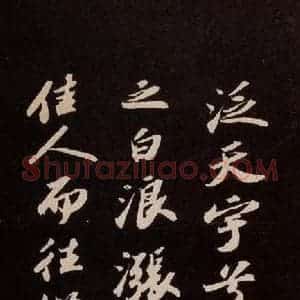 泛天宇兮
之白浪漲
佳人而往
Shufaziliao.COM